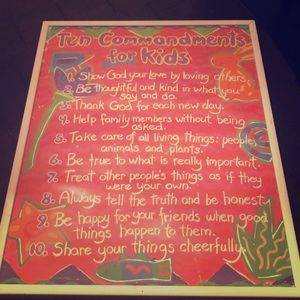 Ten Commandments
for Kids
1. Show God your Love by loving others.
2. Be thoughtful and kind in what you
say and do.
3. Thank God for each new day.
4. Help family members without being
asked.
5. Take care of all living things: people,
animals and plants.
6. Be true to what is really important.
7. Treat other people's things as if they
were your own.
8. Always tell the truth and be honest.
9. Be happy for your friends when good
things happen to them.
10. Share your things cheerfully.